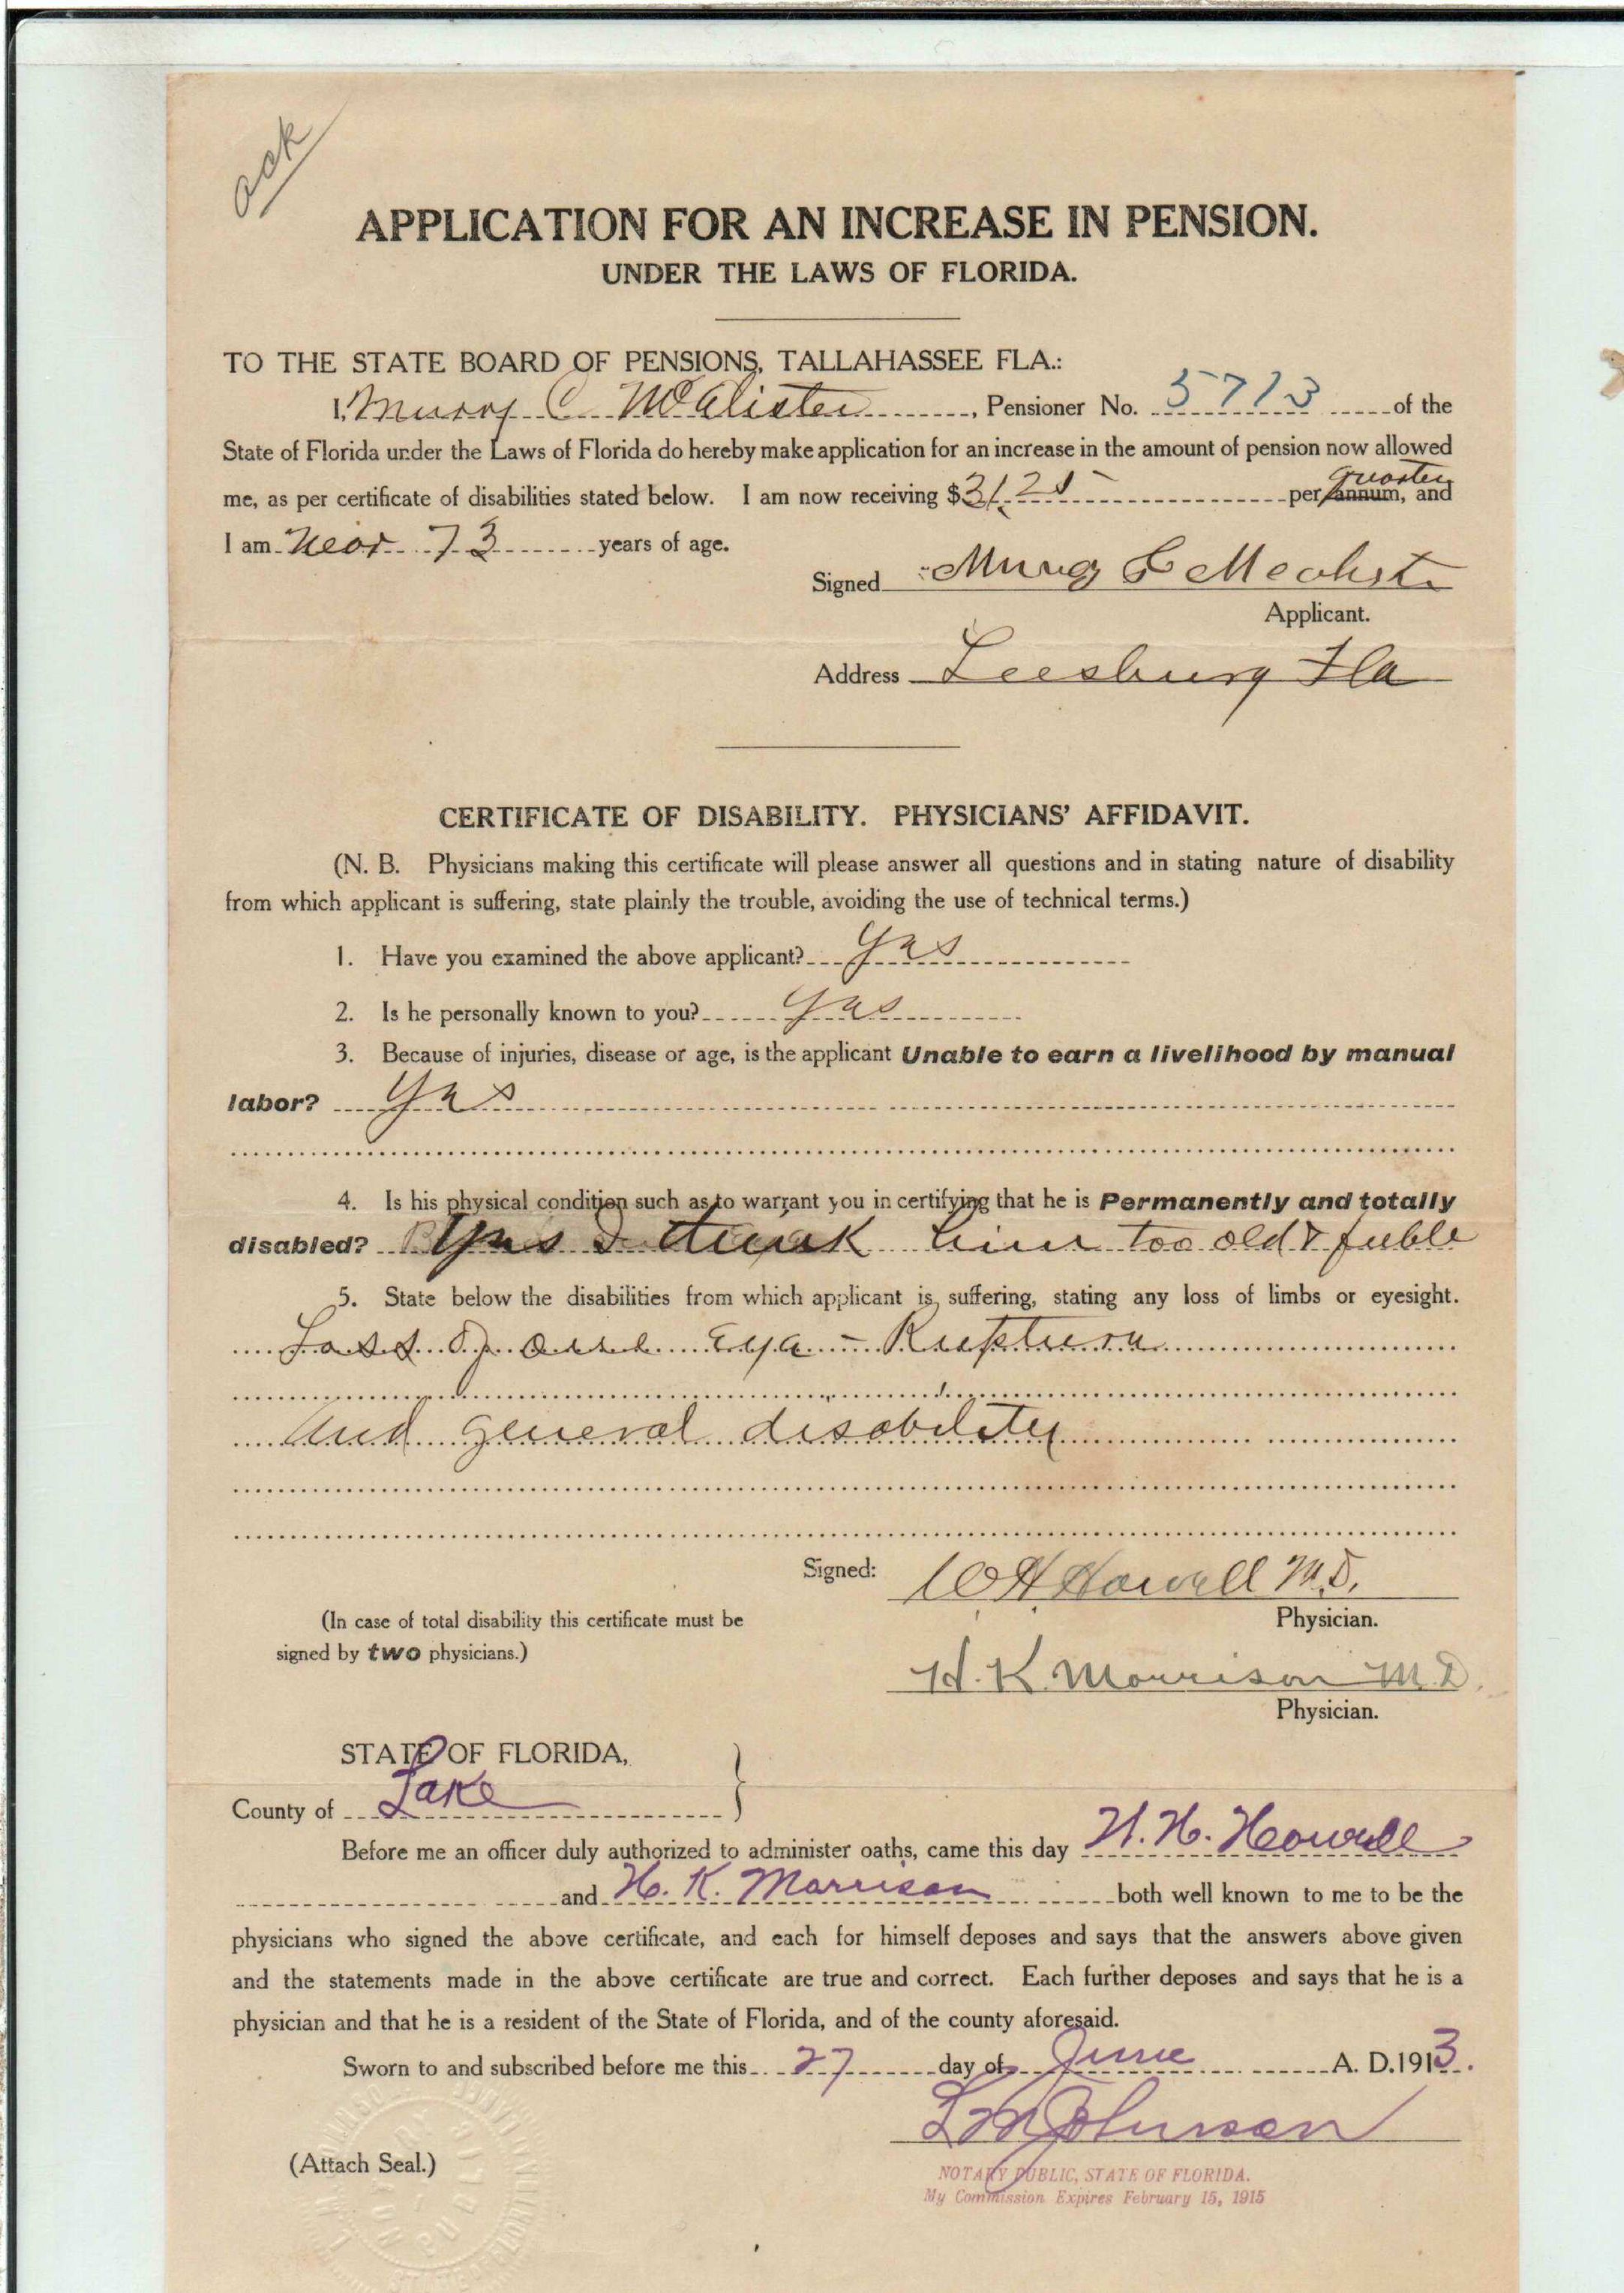 ack
APPLICATION FOR AN INCREASE IN PENSION.
UNDER THE LAWS OF FLORIDA.
TO THE STATE BOARD OF PENSIONS, TALLAHASSEE FLA.:
I, Murry C McAlister, Pensioner No. 5713 of the
State of Florida under the Laws of Florida do hereby make application for an increase in the amount of pension now allowed
quarter
me, as per certificate of disabilities stated below. I am now receiving $31.25 per annum, and
I am Near 73 years of age.
Signed Murry C
Applicant.
Address Leesburg Fla
CERTIFICATE OF DISABILITY. PHYSICIANS' AFFIDAVIT.
(N. B. Physicians making this certificate will please answer all questions and in stating nature of disability
from which applicant is suffering, state plainly the trouble, avoiding the use of technical terms.)
1. Have you examined the above applicant? Yes
2. Is he personally known to you? Yes
3. Because of injuries, disease or age, is the applicant Unable to earn a livelihood by manual
labor? Yes
4. Is his physical condition such as to warrant you in certifying that he is Permanently and totally
disabled? Yes I think him too old & feeble
5. State below the disabilities from which applicant is suffering, stating any loss of limbs or eyesight.
Loss of one Eye - Rupture
and general disability
Signed: W H Howell M.D.
(In case of total disability this certificate must be
Physician.
signed by two physicians.)
H. K. Morrison M.D.
Physician.
STATE OF FLORIDA,
County of Lake }
Before me an officer duly authorized to administer oaths, came this day W. H. Howell
and H. K. Morrison both well known to me to be the
physicians who signed the above certificate, and each for himself deposes and says that the answers above given
and the statements made in the above certificate are true and correct. Each further deposes and says that he is a
physician and that he is a resident of the State of Florida, and of the county aforesaid.
Sworn to and subscribed before me this 27 day of June A. D. 1913.
L M Johnson
(Attach Seal.)
NOTARY PUBLIC, STATE OF FLORIDA.
My Commission Expires February 15, 1915